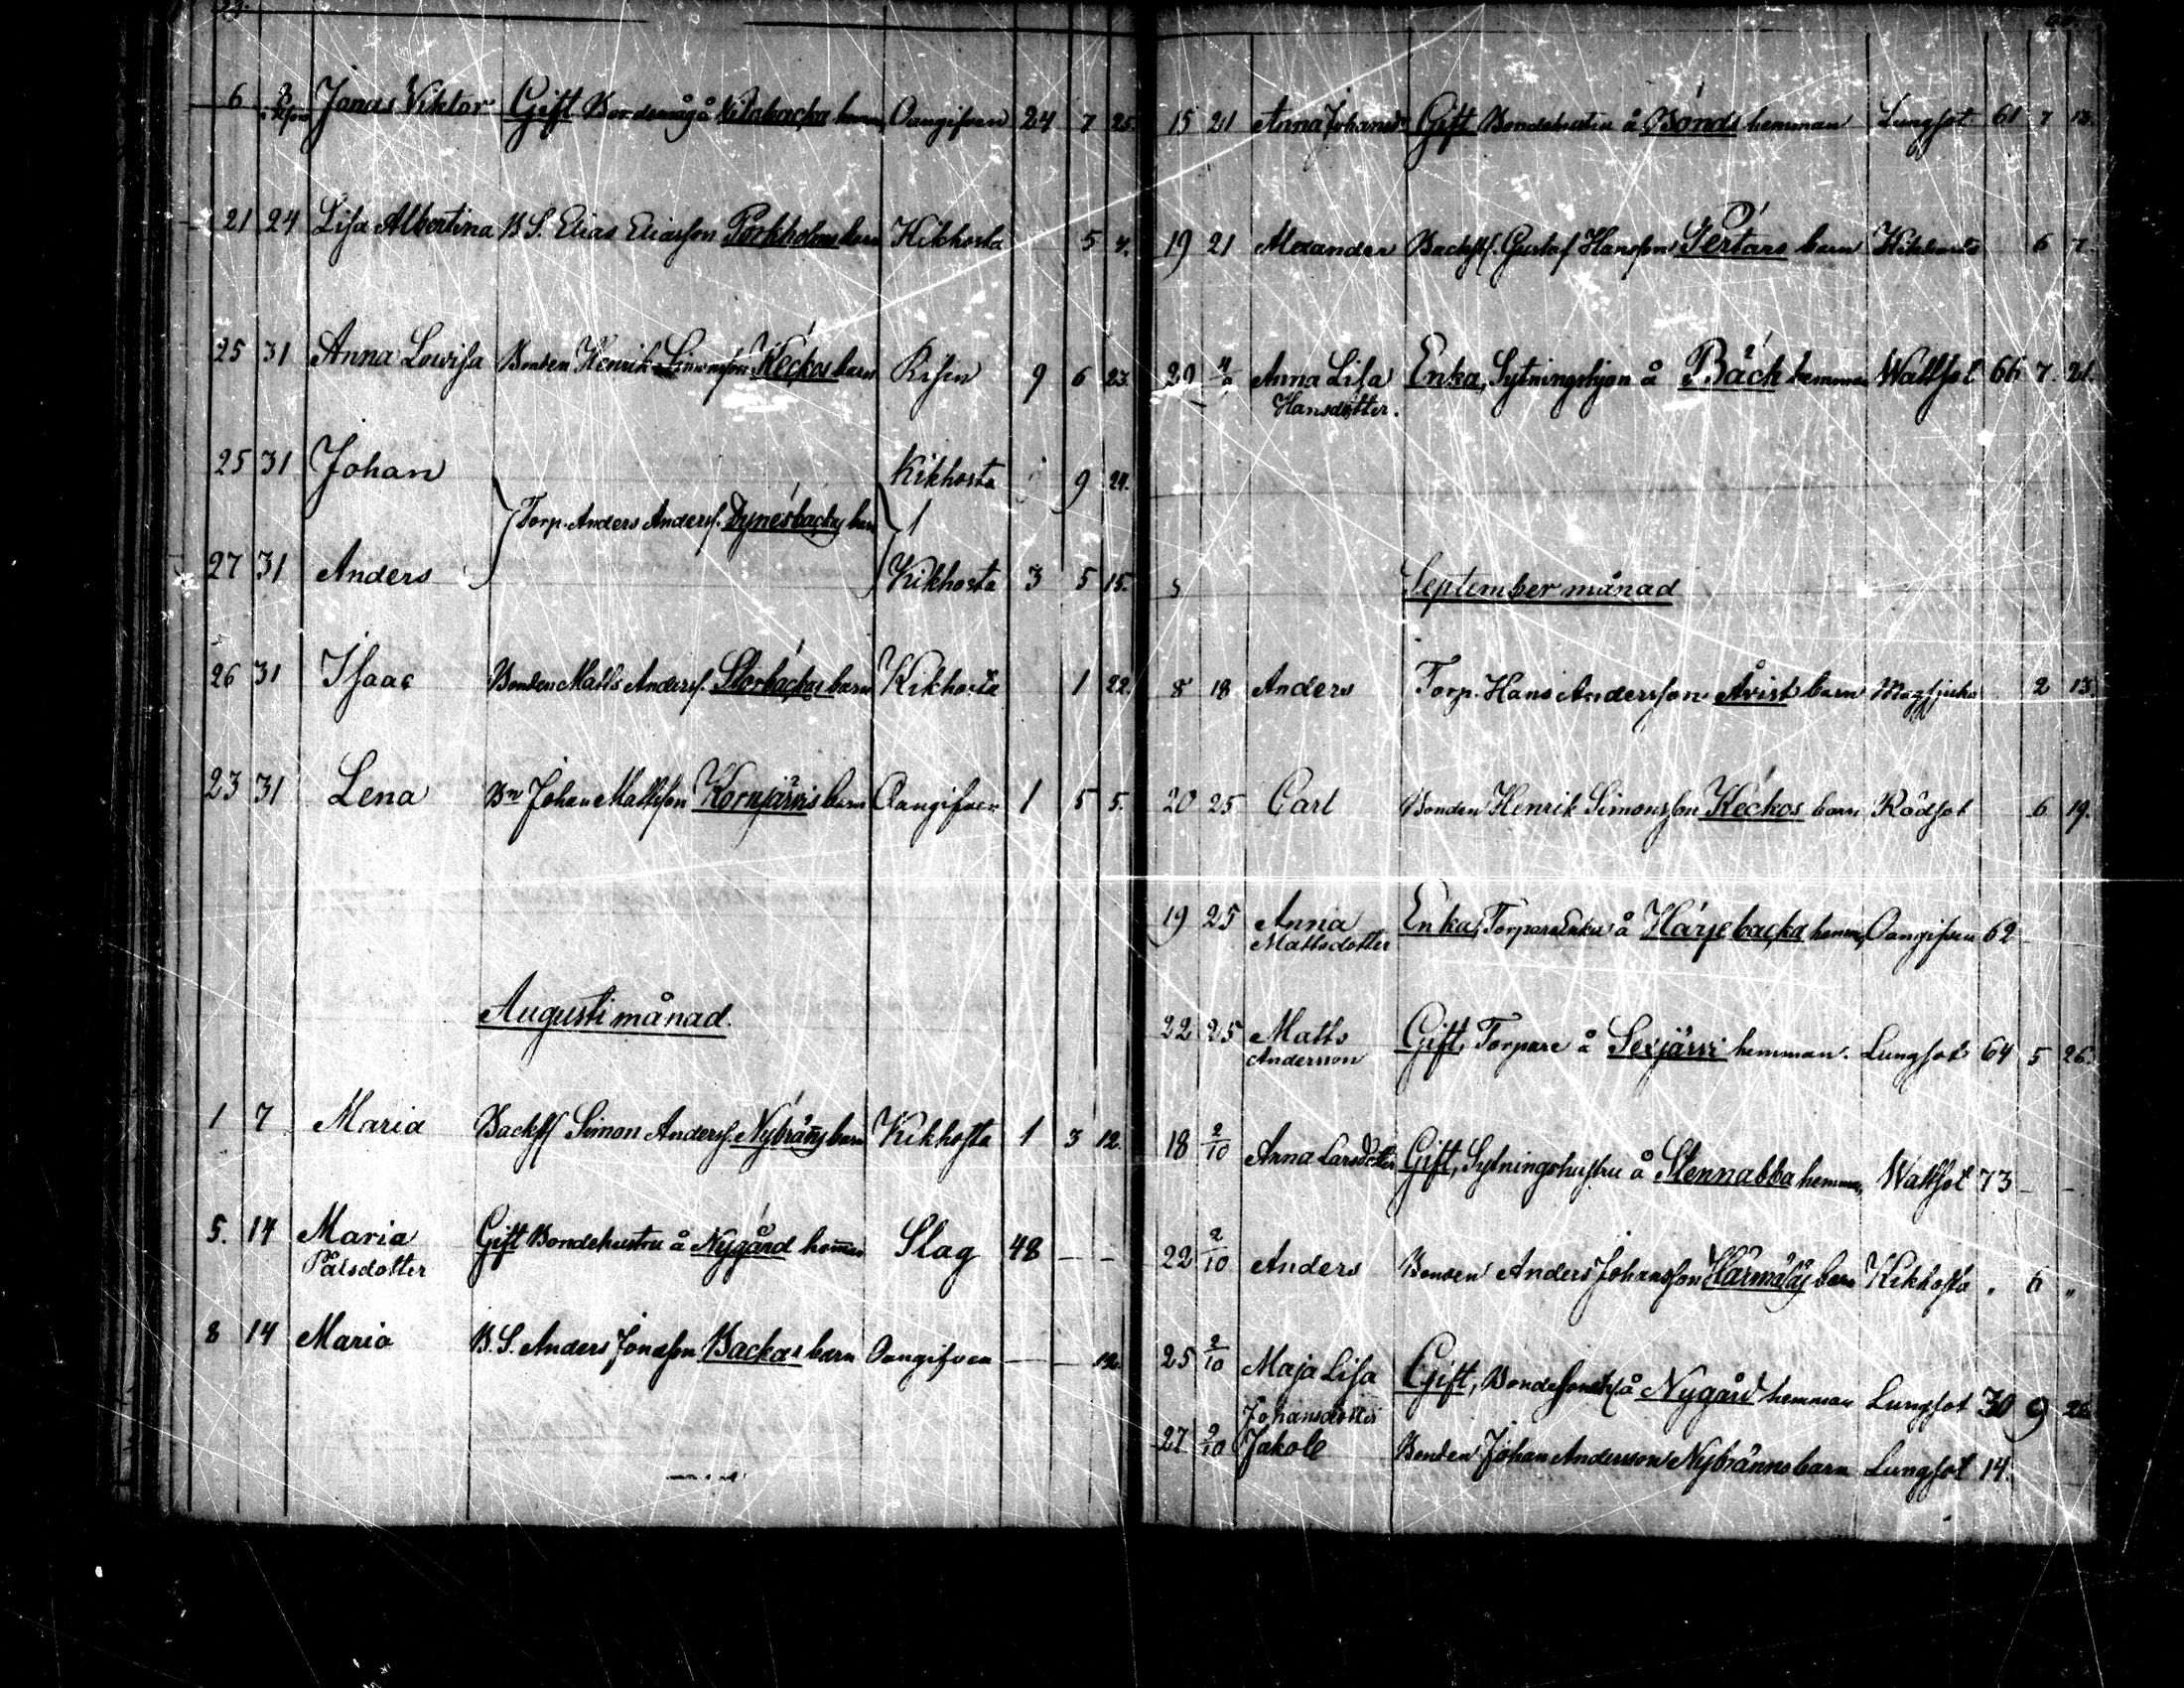 6 Jonas Viktor Gift Bondemåg å hemm Oangifven 24 7 25.
21 24 Lisa Albertina B S. Elias Eliasson Porkholms barn Kikhosta 5 4.
25 31 Anna Lovisa Bonden Henrik Simonsson Keckos barn Risin 9 6 23.
25 31 Johan Kikhosta 9 24.
Torp. Anders Anderss. Dynesbackas barn
27 31 Anders Kikhosta 3 5 15.
26 31 Isaac Bonden Matts Anderss. Storbackas barn Kikhosta 1 22.
23 31 Lena Bn Johan Mattsson Kornjärvis barn Oangifven 1 5 5.
Augusti månad.
1 7 Maria Backst Simon Anderss. Nybränns barn Kikhosta 1 3 12.
5. 14 Maria Gift Bondehustru å Nygård hemman Slag 48 – –
Pålsdotter
8 14 Maria B. S. Anders Jonasson Backas barn Oangifven – – 12.
15 21 Anna Johansdr Gift Bondehustru å Bonds hemman Lungsot 61 7 13.
19 21 Alexander Backst. Gustaf Hansson Pertars barn Kikhosta 6 7
29 4/9 Anna Lisa Enka, Sytningshjon å Bäck hemman Wattsot 66 7. 21.
Hansdotter.
September månad
8 18 Anders Torp. Hans Andersson Åvist barn Magsjuka 2 13
20 25 Carl Bonden Henrik Simonsson Keckos barn Rödsot 6 19.
19 25 Anna Enka, Torpare Enka å Härjebacka hemm, Oangifven 62
Mattsdotter
22 25 Matts Gift, Torpare å Sexjärvi hemman. Lungsot 64 5 26.
Andersson
18 2/10 Anna Larsdotter Gift, Sytningshustru å Stennabba hemman, Wattsot 73 – –
22 2/10 Anders Bonden Anders Johansson Härmäläs barn Kikhosta " 6 "
25 2/10 Maja Lisa Gift, å Nygård hemman Lungsot 30 9 26
Johansdotter
27 2/10 Jakob Bonden Johan Andersson Nybränns barn Lungsot 14.